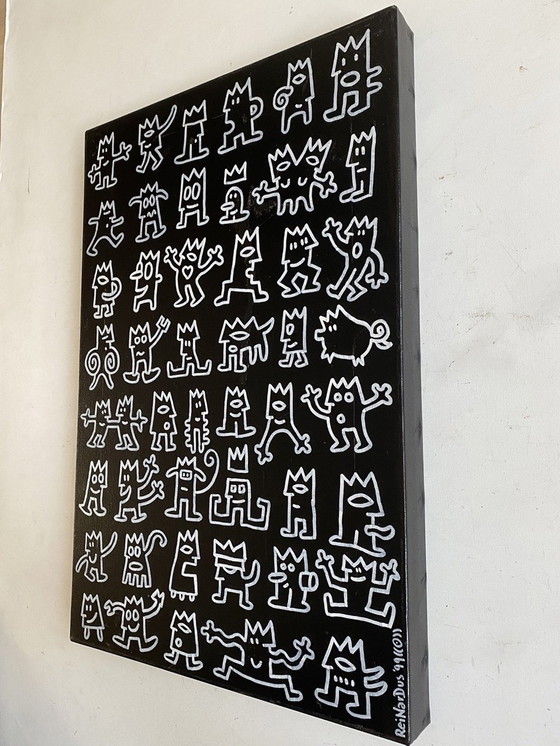 ReiNarDus '99((O))